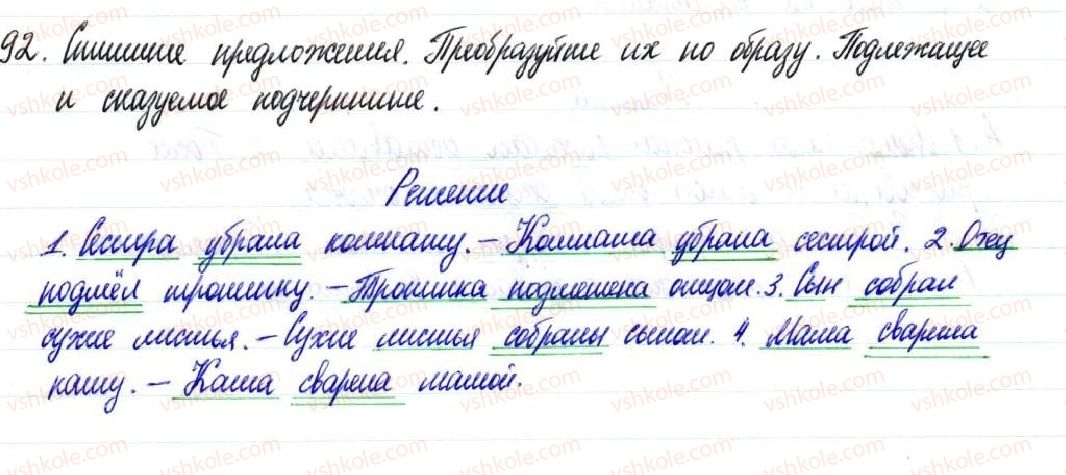 92. Спишите предложения. Преобразуйте их по образу. Подлежащее
и сказуемое подчеркните.
Решение
1. Сестра убрала комнату. – Комната убрана сестрой. 2. Отец
подмёл тропинку. – Тропинка подметена отцом. 3. Сын собрал
сухие листья. – Сухие листья собраны сыном. 4. Мама сварила
кашу. – Каша сварена мамой.